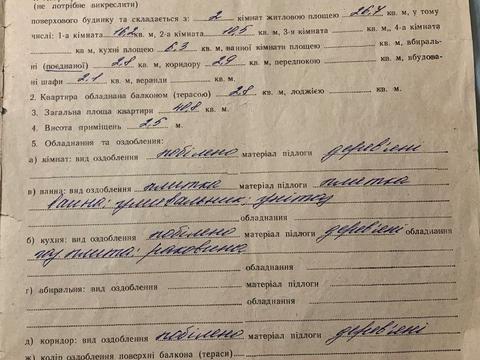 (не потрібне викреслити)
поверхового будинку та складається з: 2 кімнат житловою площею 26,7 кв. м, у тому
числі: 1-а кімната 16,2 кв. м, 2-а кімната 10,5 кв. м, 3-я кімната кв. м,, 4-а кімната
ка м, кухні площею 6,3 кв. м, ванної кімнати площею кв. м, вбираль-
ні (поєднаної) 2,8 кв. м, коридору 2,9 кв. м, передпокою кв. м, вбудова-
ні шафи 2.1 кв. м, веранди кв. м.
2. Квартира обладнана балконом (терасою) 2,8 кв. м, лоджією кв. м.
3. Загальна площа квартири 40,8 кв. м.
4. Висота приміщень 2,5 м.
5. Обладнання та оздоблення:
а) кімнат: вид оздоблення побілено матеріал підлоги дерев'яні
в) ванна: вид оздоблення плитка матеріал підлоги плитка
ванна; умивальник; унітаз
обладнання
б) кухня: вид оздоблення побілено матеріал підлоги дерев'яні обладнання
плита; раковина
обладнання
г) вбиральня: вид оздоблення матеріал підлоги
обладнання
д) коридор: вид оздоблення побілено матеріал підлоги дерев'яні
ж) колір оздоблення поверхні балкона (тераси)